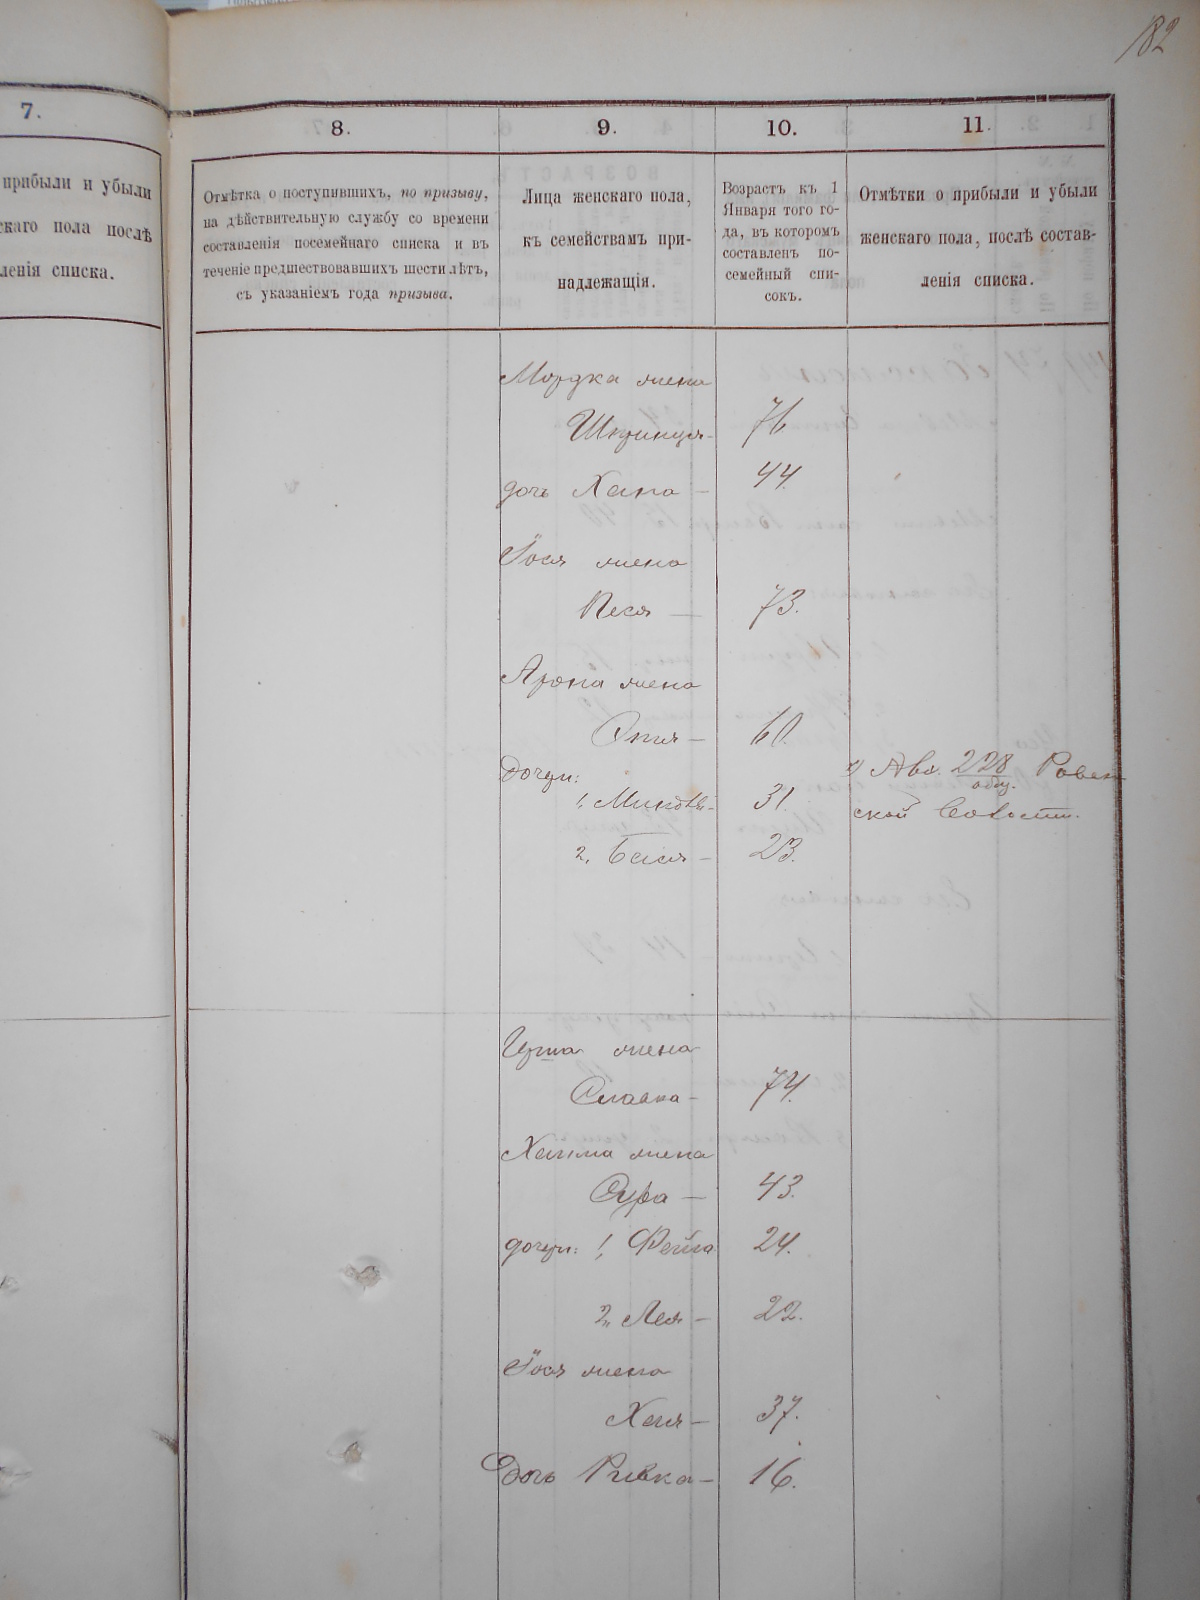 182
7.
прибыли и убыли
скаго пола послѣ
ленія списка.
8.
9.
10.
11.
Отмѣтка о поступившихъ, по призыву,
на дѣйствительную службу со времени
составленія посемейнаго списка и въ
теченіе предшествовавшихъ шести лѣтъ,
съ указаніемъ года призыва.
Лица женскаго пола,
къ семействамъ при-
надлежащія.
Возрастъ къ 1
Января того го-
да, въ которомъ
составленъ по-
семейный спи-
сокъ.
Отмѣтки о прибыли и убыли
женскаго пола, послѣ состав-
ленія списка.
Мордка жена
Шпринця - 76
дочь Хана - 44.
Іося жена
Песя - 73.
Арона жена
60.
Дочери:
1, 31.
Авг. 228 Ровен
ской
2, Бася - 23.
Ицка жена
Славка - 74.
Хаима жена
Сура - 43.
дочери: 1, Фейга 24.
2, Лея - 22.
Іося жена
Хая - 37.
Дочь Ривка - 16.